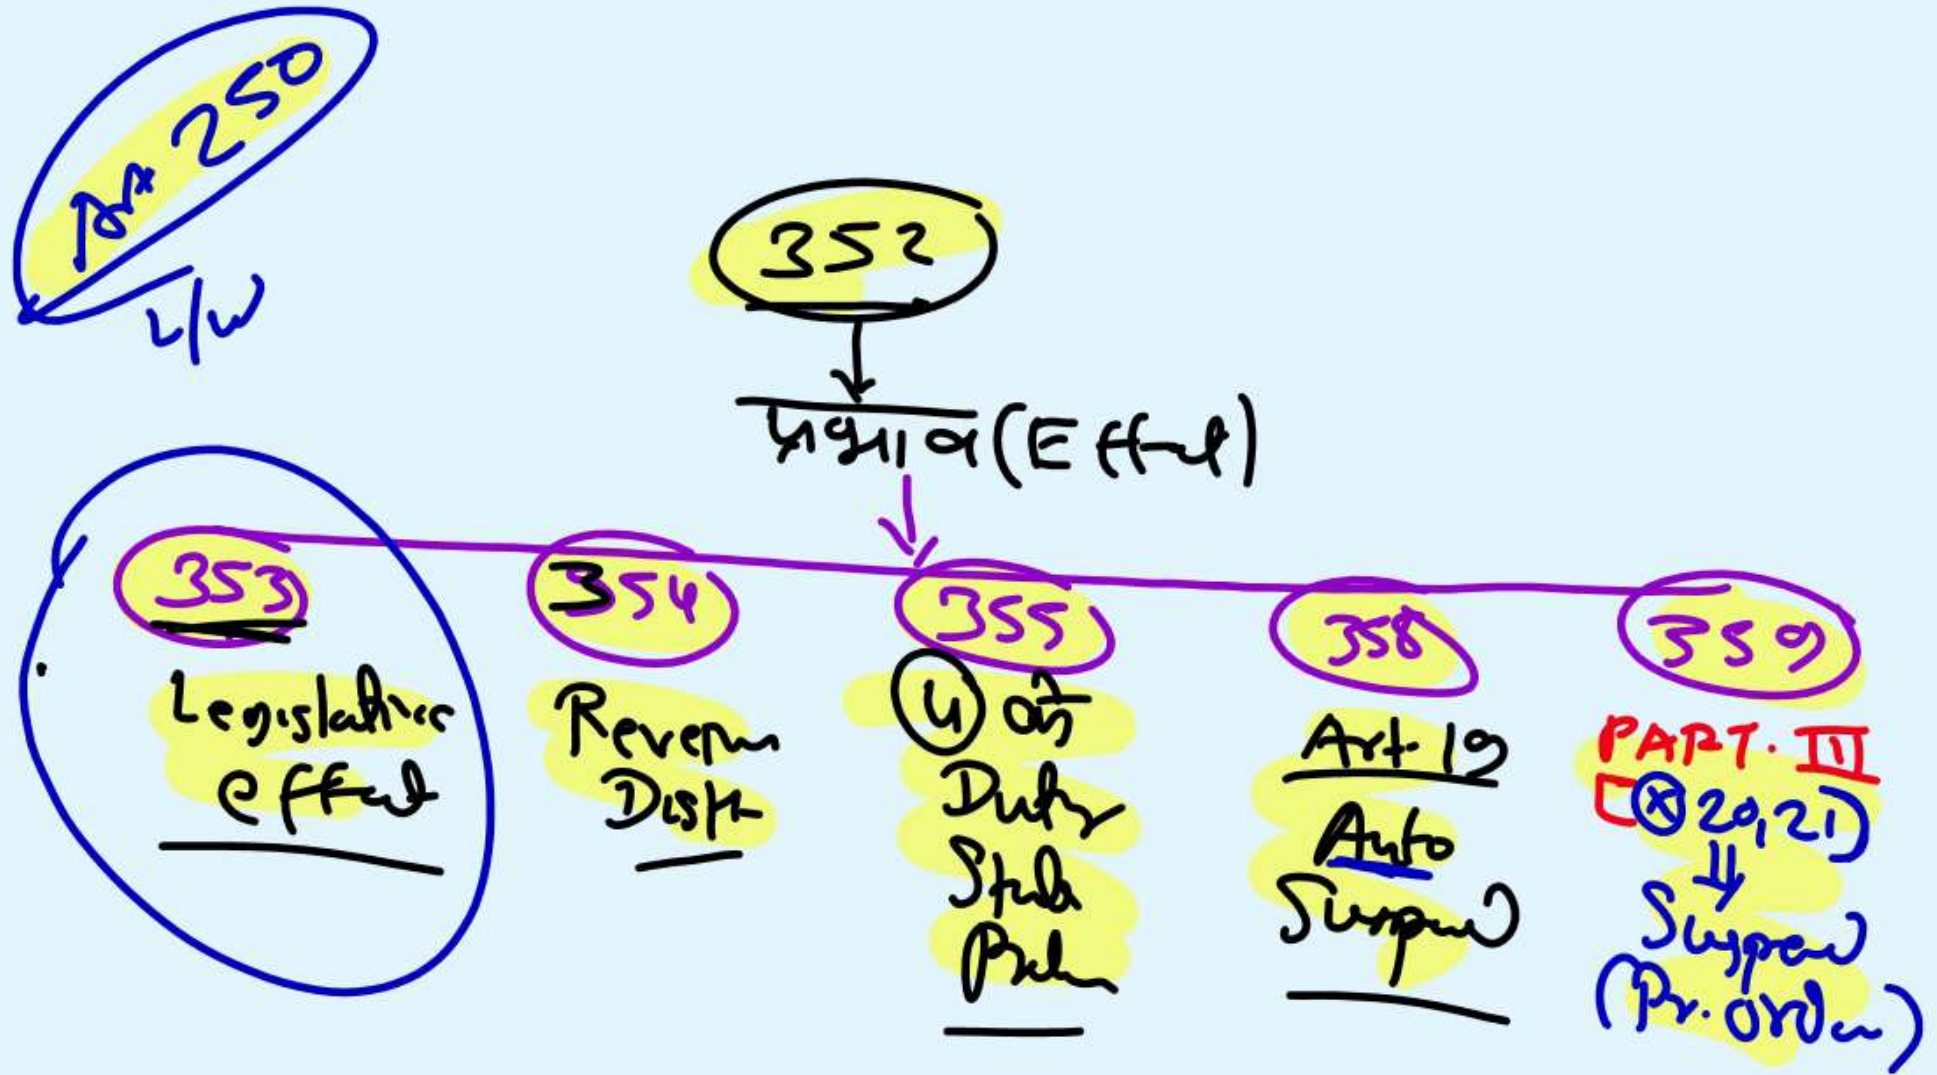 Art 250
L/W
352
प्रभाव (Effect)
353
Legislative
effect
354
Revenue
Distr
355
U को
Duty
State
358
Art. 19
Auto
Suspend
359
PART. III
[ⓧ 20, 21)
⇓
Suspend
(Pr. order)